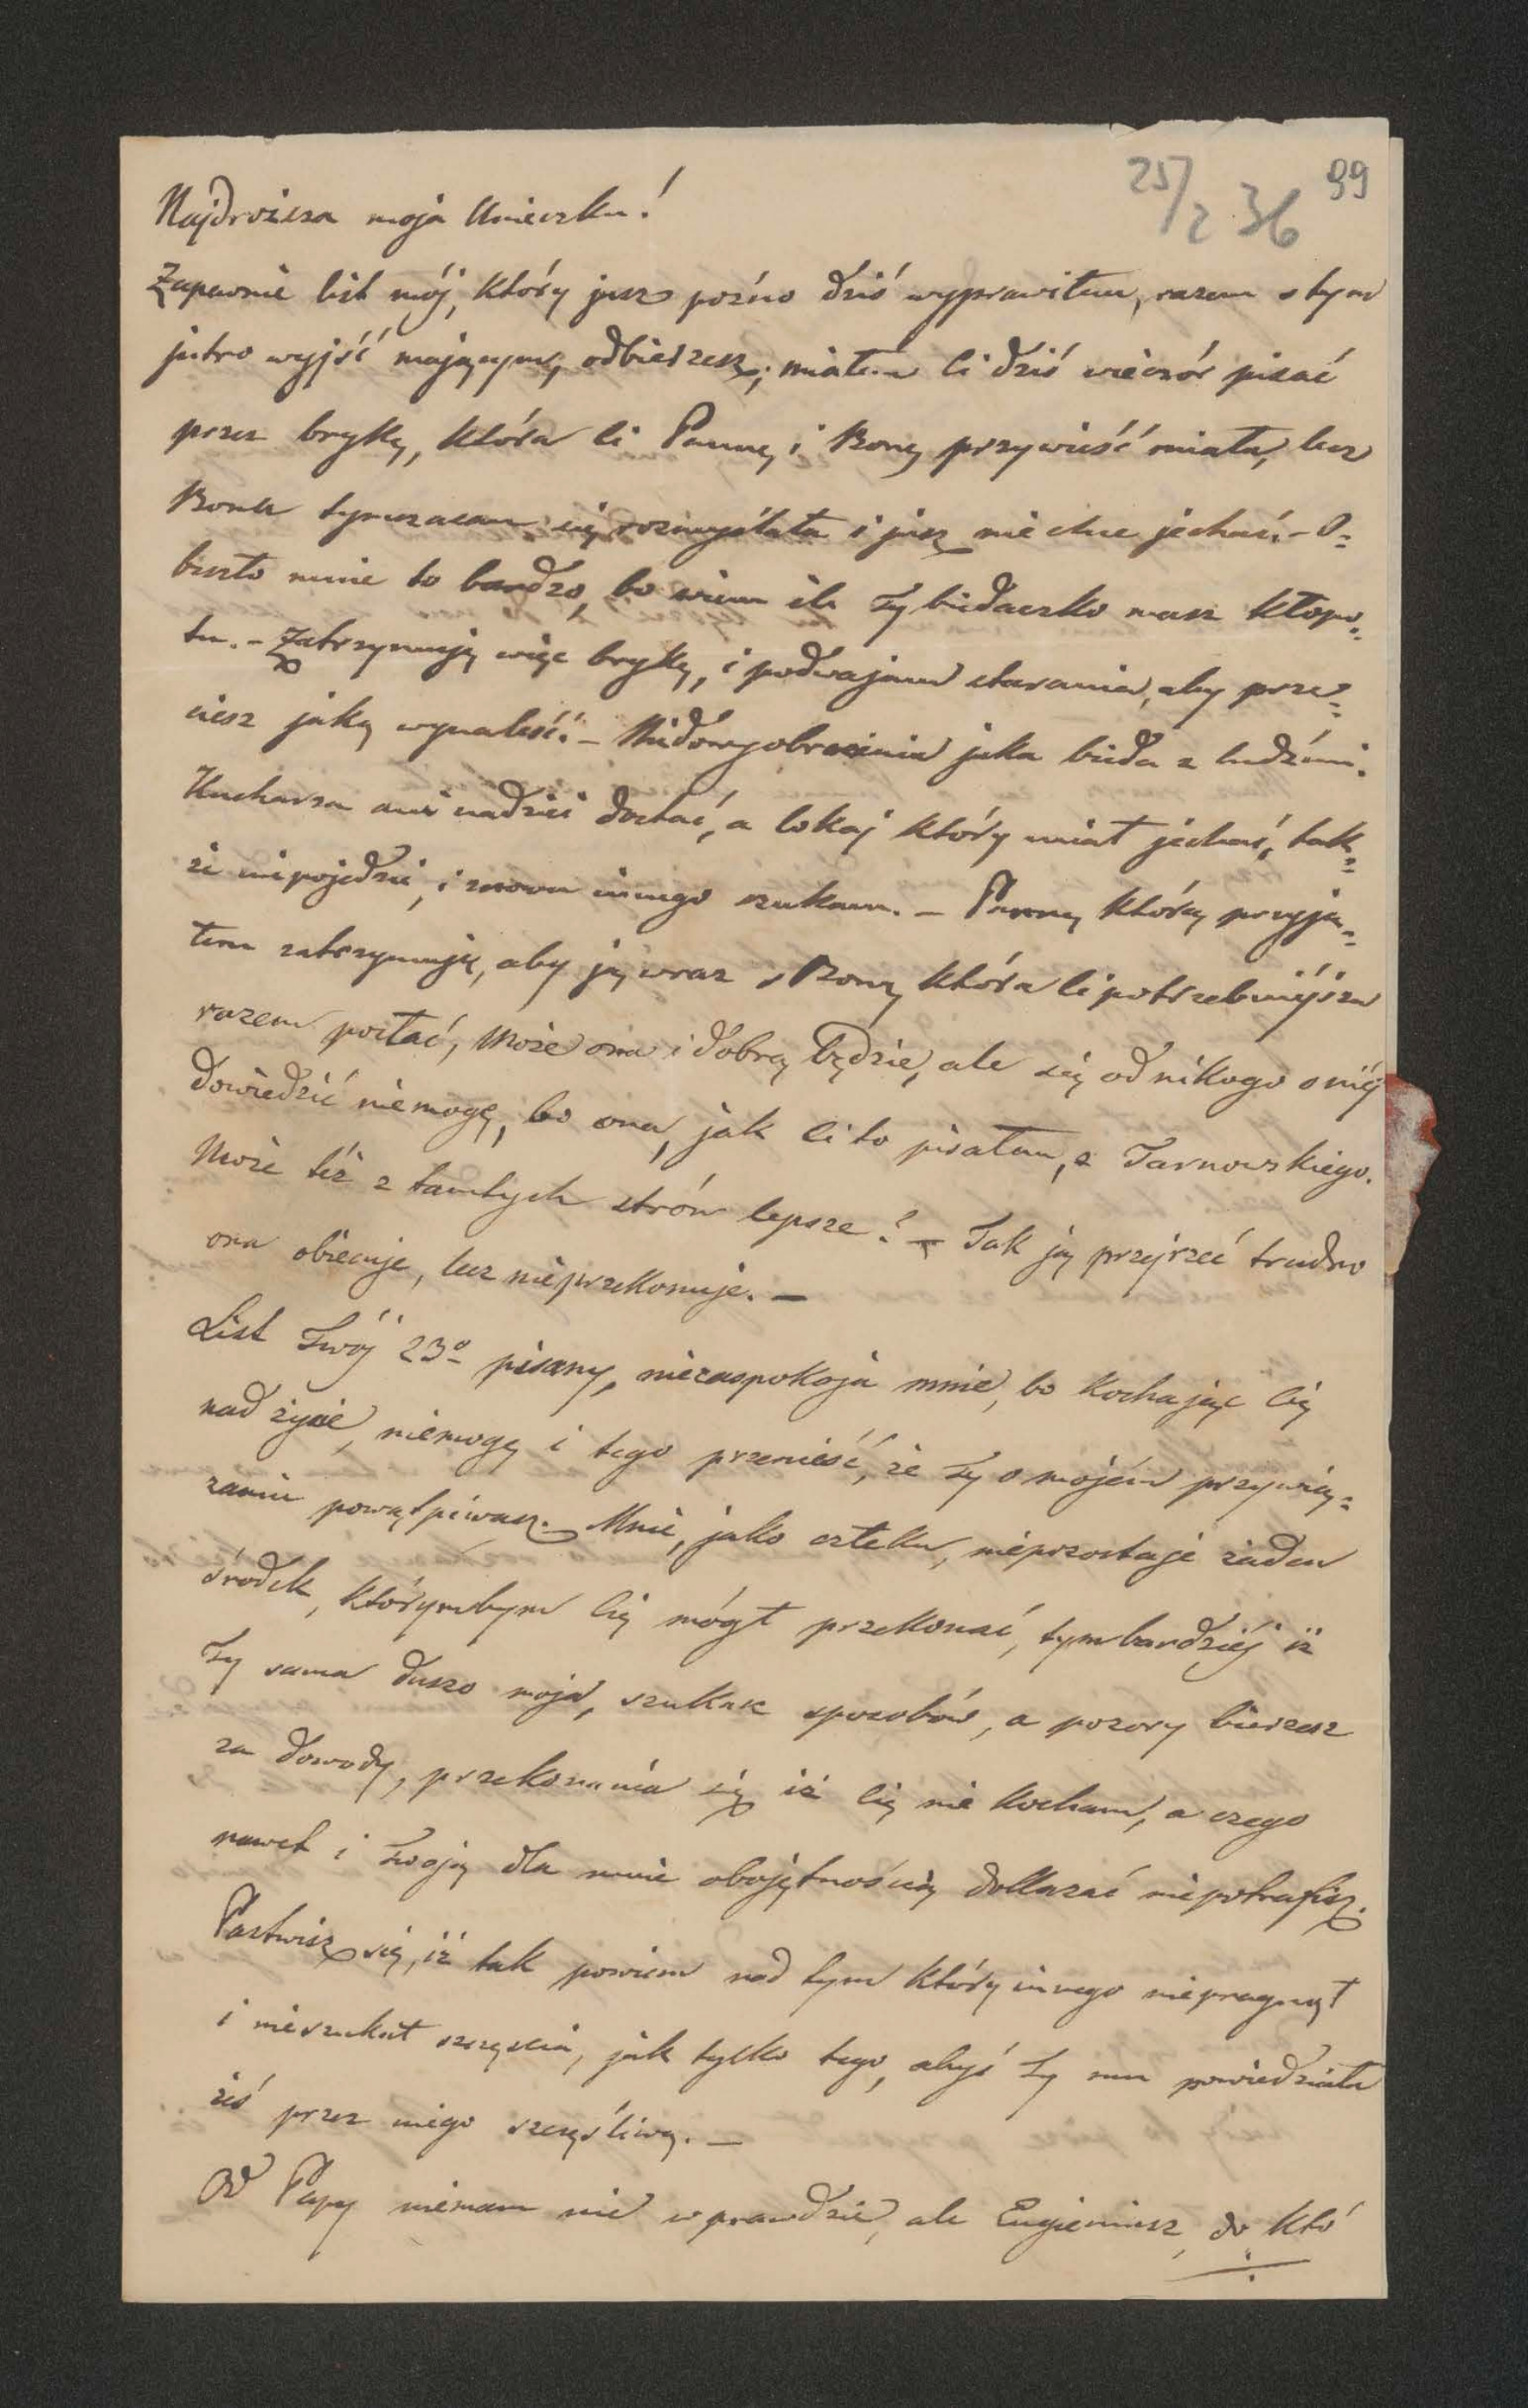 25/2 36 99
Najdroższa moja Unieczku!
Zapewnie list mój, który jusz poźno dziś wyprawiłem, razem s tym
jutro wyjść mającym, odbierzesz; miałem Ci dziś wieczór pisać
przez brykę, która Ci Pannę i Bonę przywieść miała, lecz
Bona tymczasem się rozmyśłała i jusz nie chce jechać. – O=
beszło mnie to bardzo, bo wiem ile Ty biedaczko masz kłopo=
tu. – Zatrzymuję więc brykę, i podwajam starania, aby prze=
ciesz jaką wynaleść. – Niedowyobrażenia jaka bieda z ludźmi.
Kucharza ani nadzieii dostać, a lokaj który miał jechać, tak=
że niepojedzie, i znowu innego szukam. – Pannę którą przyją=
łem zatrzymuję, aby ją wraz s Boną która Ci potrzebniéjsza
razem posłać, Może ona i dobrą będzie, ale się od nikogo o niéj
dowiedzić niemogę, bo ona, jak Ci to pisałem, z Tarnowskiego.
Może też z tamtych strón lepsze? – Tak ją przejrzeć trudno
ona obiecuje, lecz nieprzekonuje. –
List Twój 23º pisany, niezaspokoja mnie, bo kochając Cię
nad życie, niemogę i tego przenieść, że Ty o mojém przywią=
zaniu powątpiwasz. Mnie, jako człeku, niepozostaje żaden
środek, którymbym Cię mógł przekonać, tymbardziéj iż
Ty sama duszo moja, szukasz sposobów, a pozory bierzesz
za dowody, przekonania się iż Cię nie kocham, a czego
nawet i Twoją dla mnie obojętnością dokazać niepotrafisz.
Pastwisz się, iż tak powiem nad tym który innego niepragnął
i nieszukał szczęścia, jak tylko tego, abyś Ty mu powiedziała
żeś przez niego szczęśliwą. –
Od Papy niemam nic wprawdzie, ale Eugieniusz, do któ